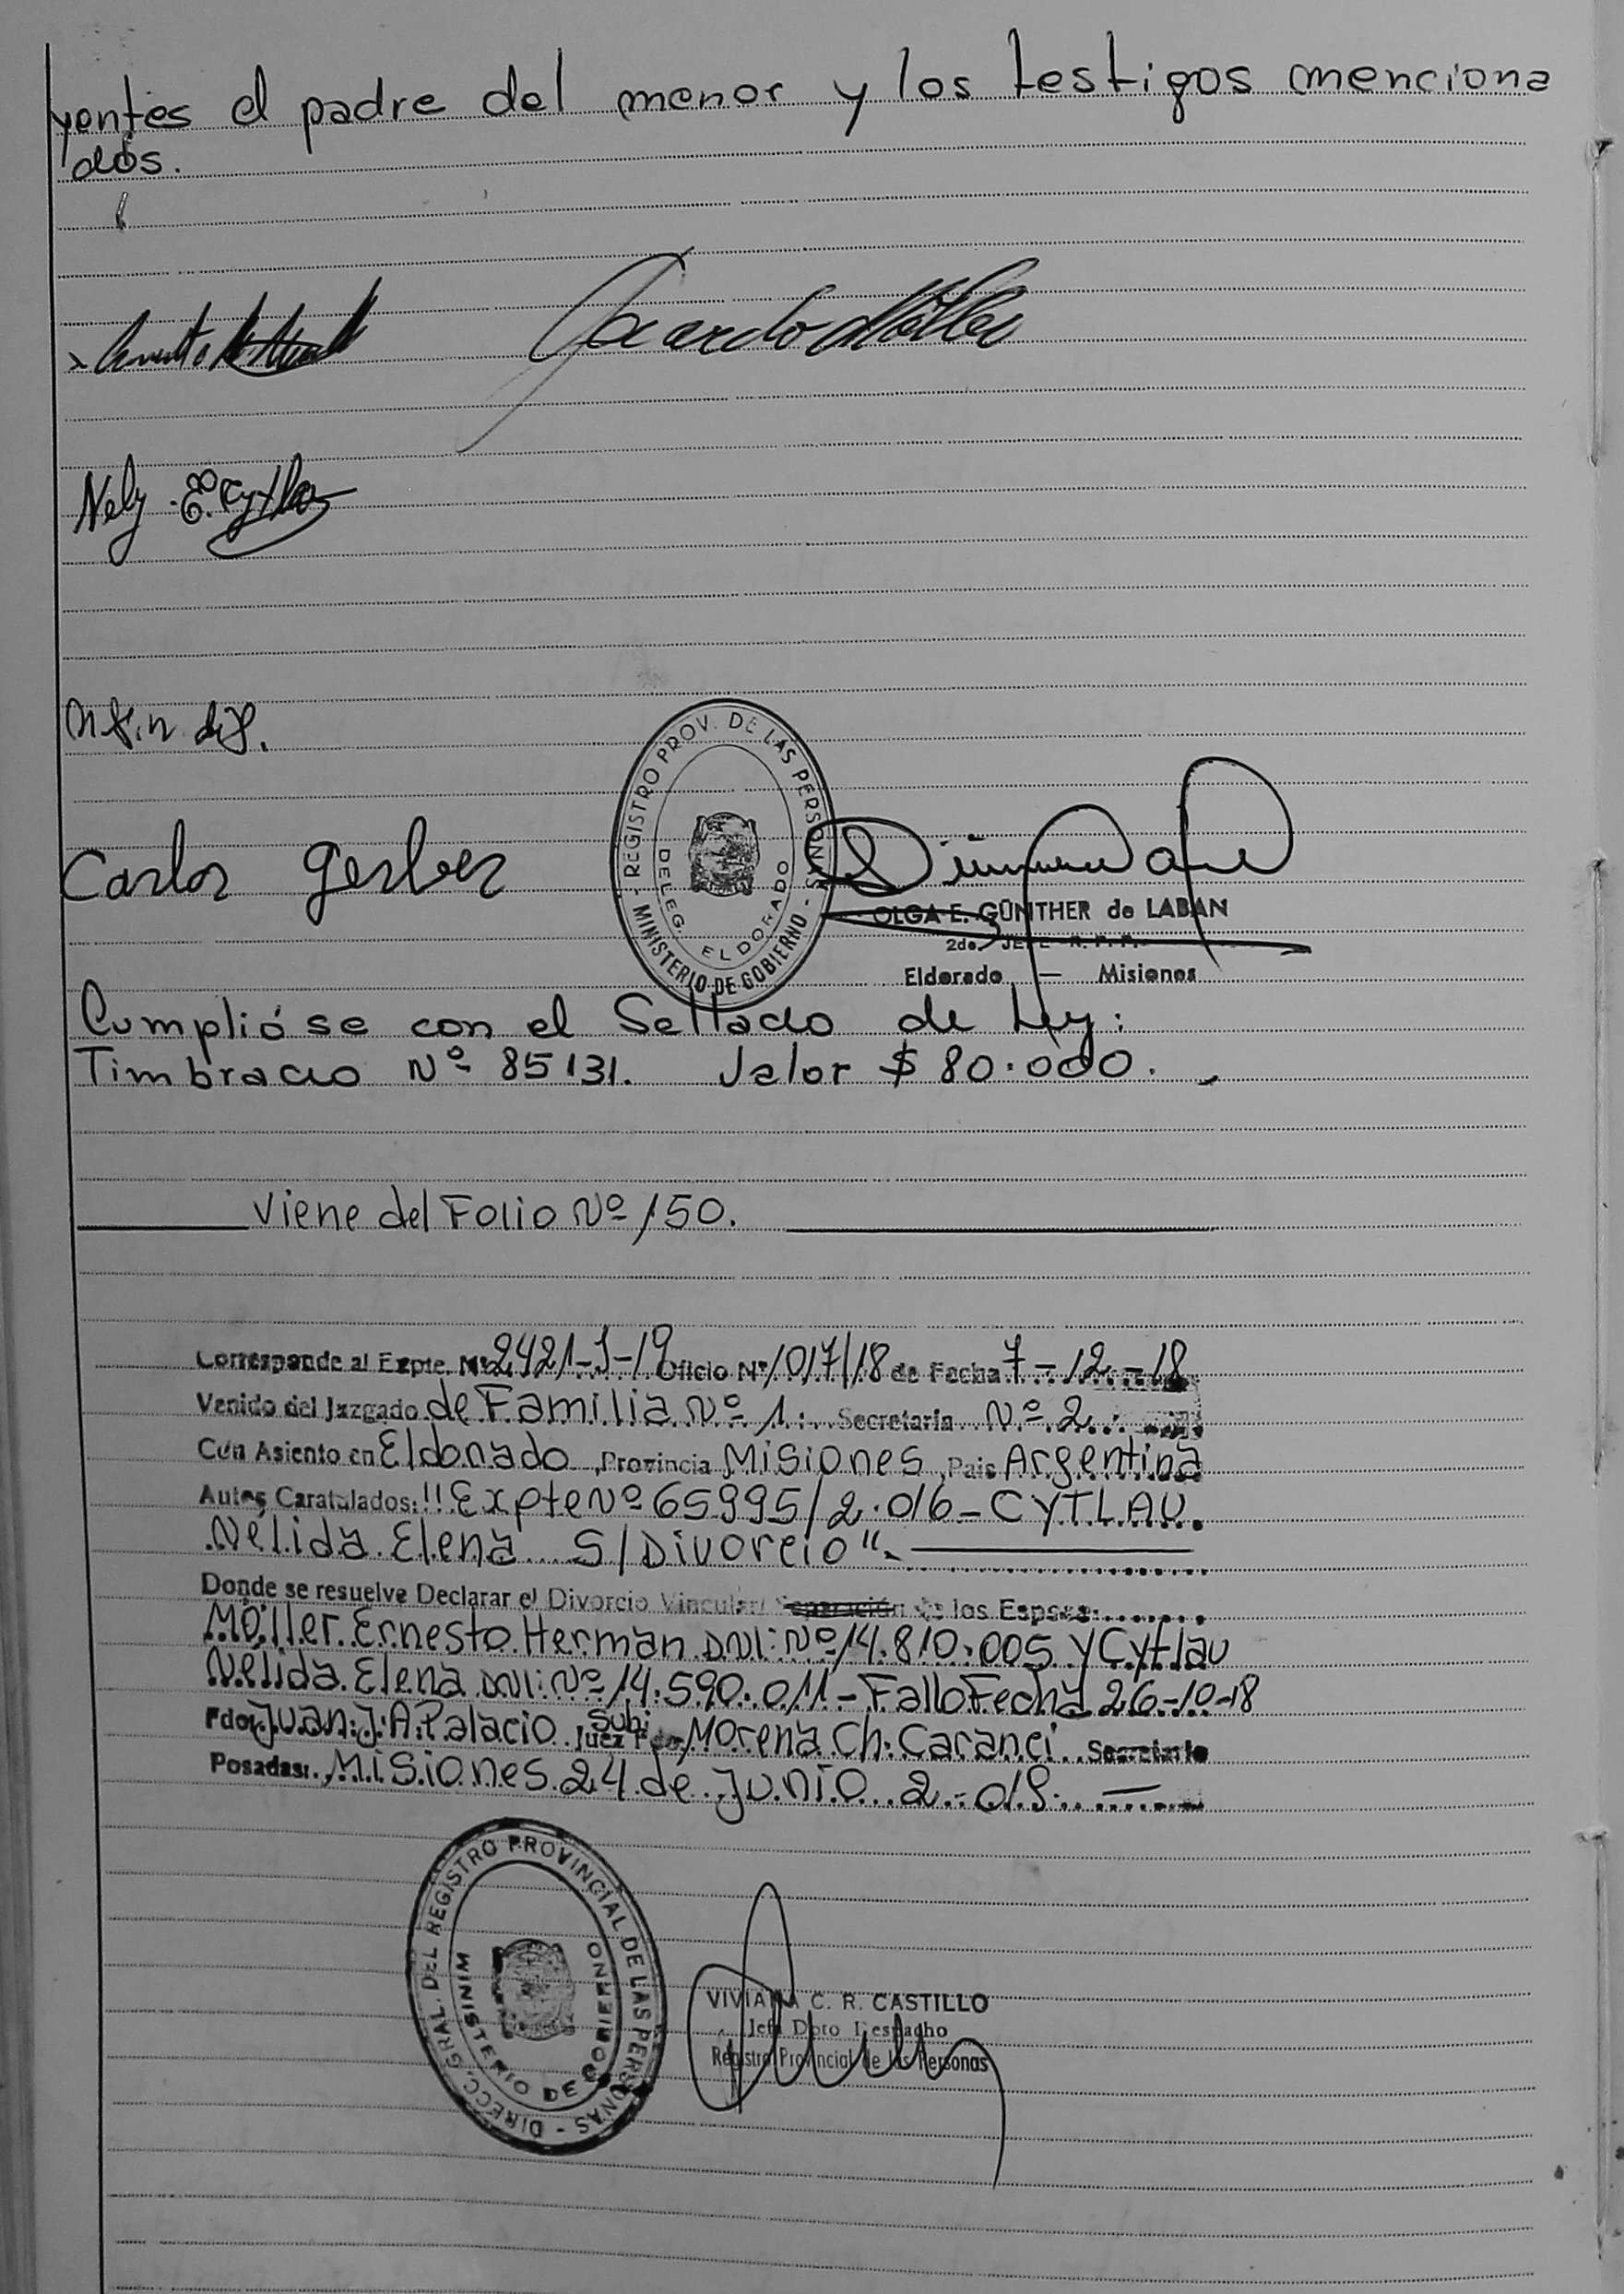 yentes el padre del menor y los testigos menciona
dos.
Gerardo Möller
Nely E. Cytlau
Carlos Gerber
REGISTRO PROV. DE LAS PERSONAS - MINISTERIO DE GOBIERNO -
DELEG. ELDORADO
OLGA E. GÜNTHER de LABAN
2do. JEFE R. P. P.
Eldorado — Misiones
Cumplióse con el Sellado de Ley:
Timbrado Nº 85131. Valor $ 80.000.
Viene del Folio Nº 150.
Corresponde al Expte. Nº 2421-J-19 Oficio Nº 1017/18 de Fecha 7-12-18
Venido del Juzgado de Familia Nº 1. Secretaria Nº 2.
Con Asiento en Eldorado, Provincia Misiones, Pais Argentina
Autos Caratulados: "Expte Nº 65995/2.016 - CYTLAU.
Nélida Elena S/Divorcio".
Donde se resuelve Declarar el Divorcio Vincular/ Separación de los Esposos:
Möller Ernesto Herman DNI: Nº 14.810.005 y Cytlau
Nélida Elena DNI: Nº 14.590.011 - Fallo Fecha 26-10-18
Fdo: Juan J. A. Palacio Subr. Juez Fdo. Morena Ch. Caranci Secretaria
Posadas: Misiones 24 de Junio 2.019.
DIRECC. GRAL. DEL REGISTRO PROVINCIAL DE LAS PERSONAS -
MINISTERIO DE GOBIERNO
VIVIANA C. R. CASTILLO
Jefa Dpto Despacho
Registro Provincial de las Personas